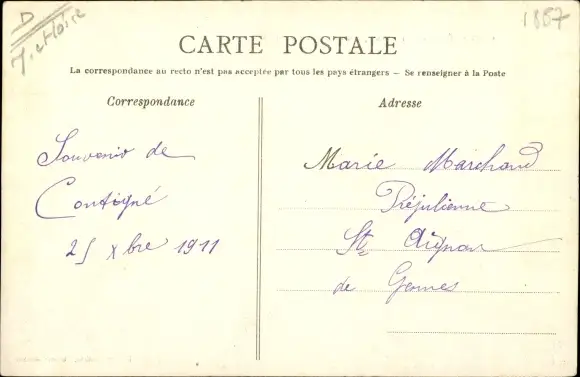 D
1887
CARTE POSTALE
La correspondance au recto n'est pas acceptée par tous les pays étrangers — Se renseigner à la Poste
Correspondance
Adresse
Souvenir de
Contigné
25 Xbre 1911
Marie Marchand
Préjulienne
St Aignan
de Gennes